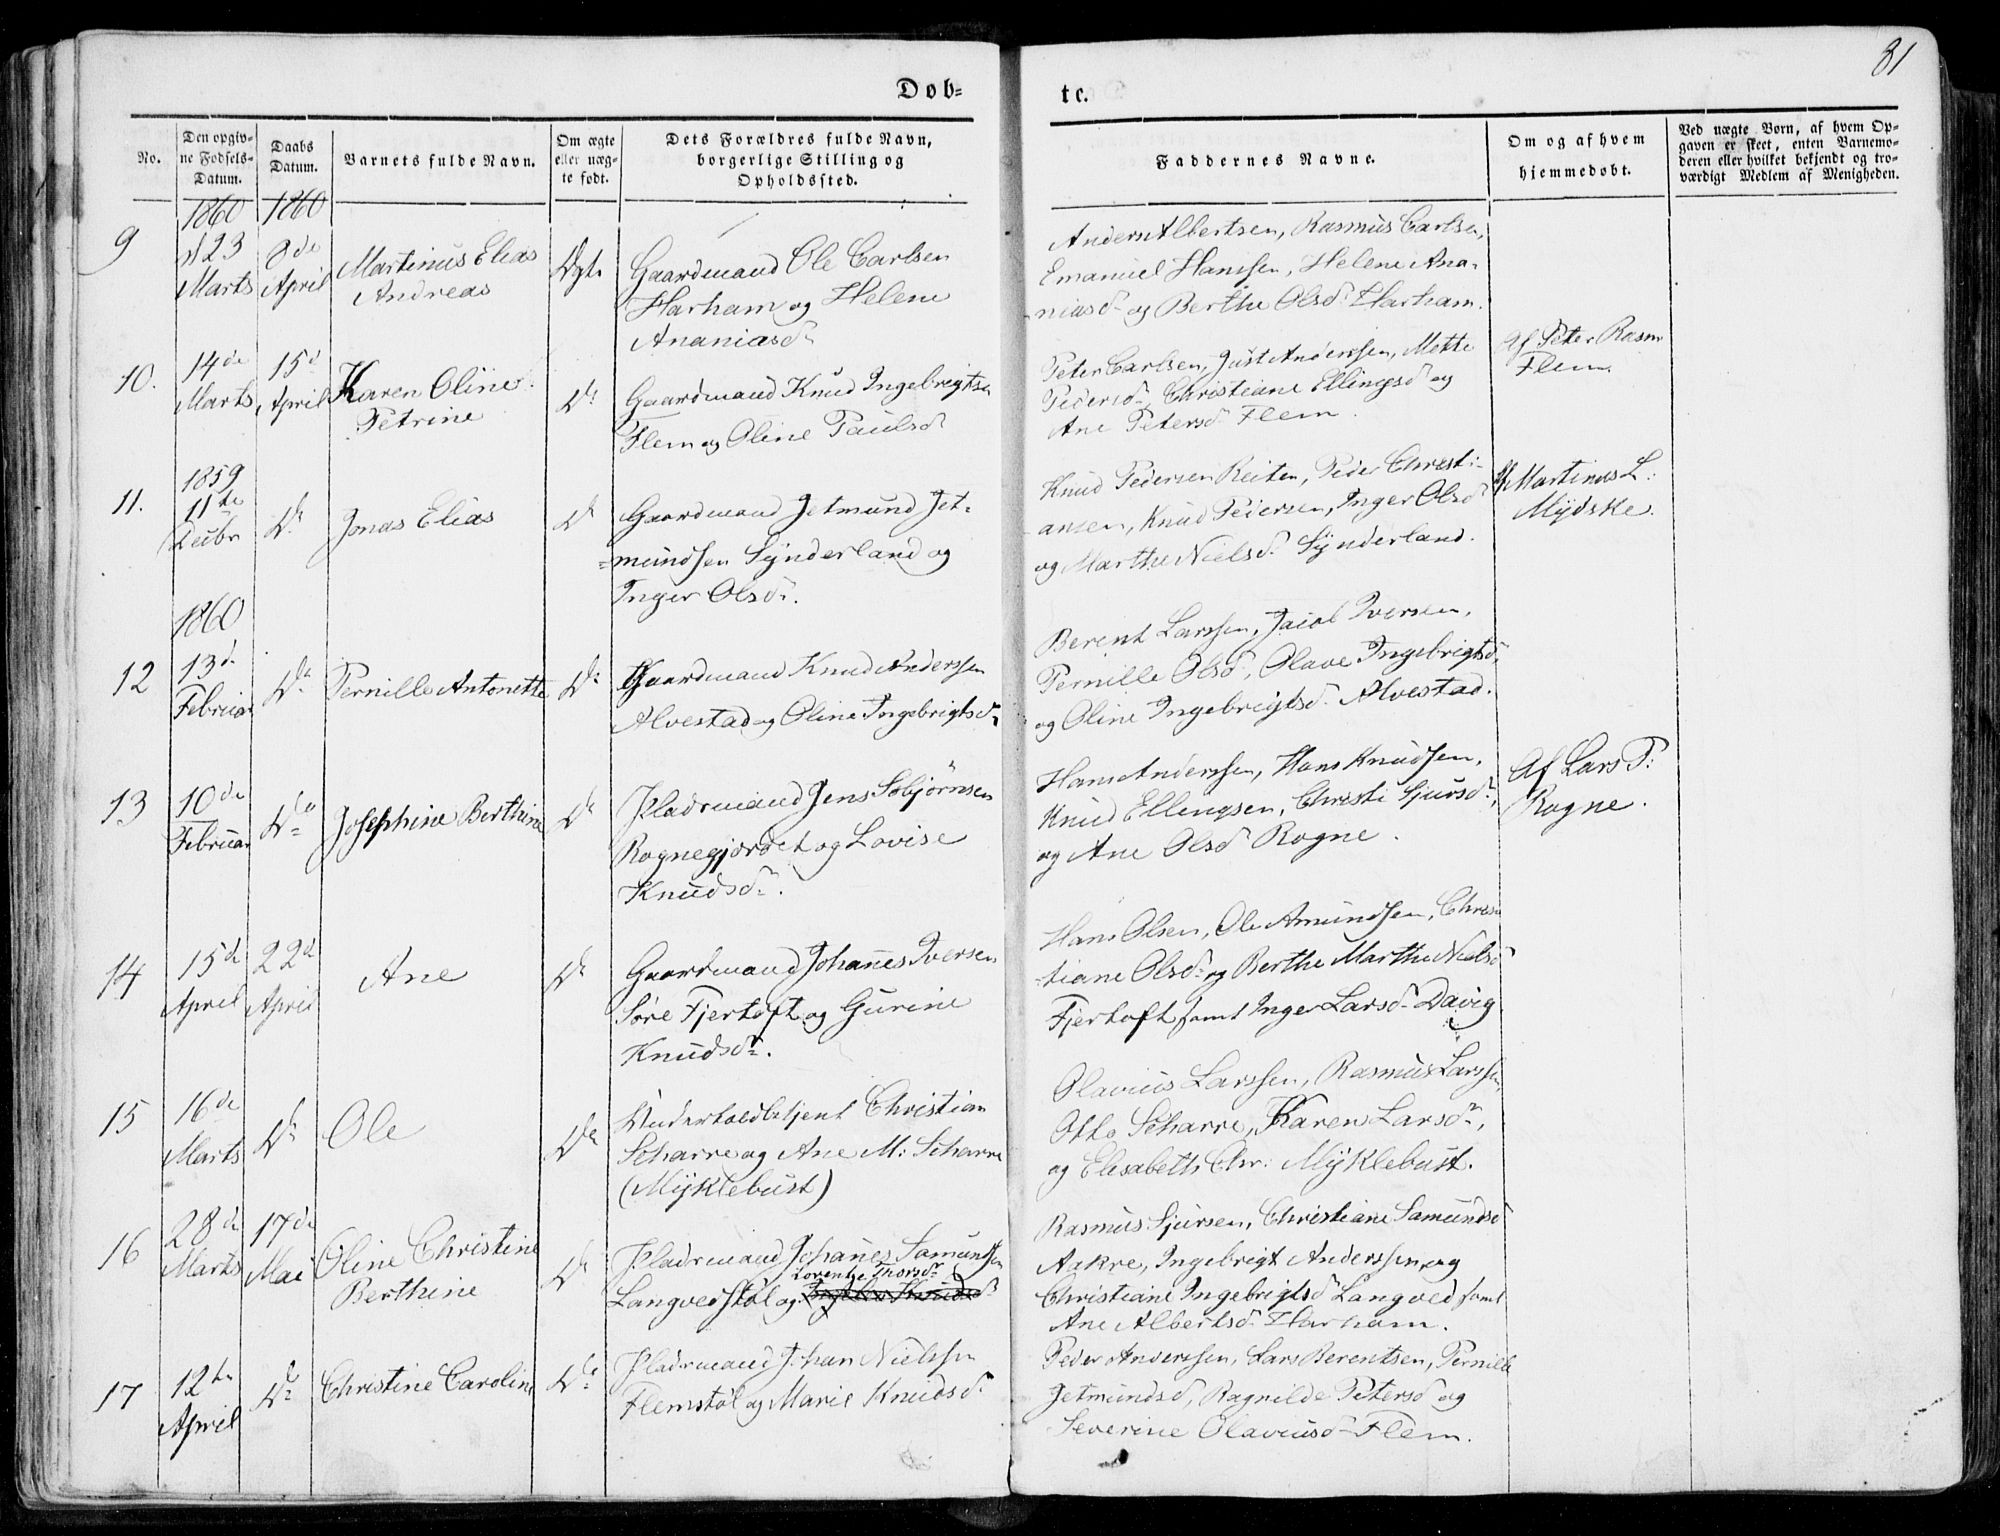 81
Døb=
te.
No.
Den opgiv-
ne Fødsels-
Datum.
Daabs
Datum.
Barnets fulde Navn.
Om ægte
eller uæg-
te født.
Dets Forældres fulde Navn,
borgerlige Stilling og
Opholdssted.
Faddernes Navne.
Om og af hvem
hjemmedøbt.
Ved uægte Børn, af hvem Op-
gaven er skeet, enten Barnemo-
deren eller hvilket bekjendt og tro-
værdigt Medlem af Menigheden.
1860
1860
9
23
Marts
8de
April
Martinus Elias
Andreas
Ægte
Gaardmand Ole Carlsen
Harham og Helene
Ananiasd.
Anders Albertsen, Rasmus Carlsen,
Emanuel Hanssen, Helene Ana-
niasd. og Berthe Olsd. Harham.
10.
14de
Marts
15d
April
Karen Oline
Petrine
Do
Gaardmand Knud Ingebrigtsen
Flem og Oline Paulsd.
Peter Carlsen, Just Anderssen, Mette
Pedersd., Christiane Ellingsd og
Ane Petersd. Flem.
Af Peter Rasm
Flem
11.
1859
11te
Decbr
Do
Jonas Elias
Do
Gaardmand Jetmund Jet-
=mundsen Synderland og
Inger Olsd.
Knud Pedersen Reiten, Peder Christi-
ansen, Knud Pedersen, Inger Olsd
og Marthe Nielsd. Synderland.
Af Martinus L:
Mydske.
1860
12
13de
Februar
Do
Pernille Antonette
Do
Gaardmand Knud Anderssen
Alvestad og Oline Ingebrigtsd.
Berent Larssen, Jacob Iversen,
Pernille Olsd., Olave Ingebrigtsd.
og Oline Ingebrigtsd. Alvestad.
13
10de
Februar
Do
Josephine Berthine
Do
Pladsmand Jens Sobjørnsen
Rognegjærdet og Lovise
Knudsd.
Hans Anderssen, Hans Knudsen,
Knud Ellingsen, Christi Sjursd.,
og Ane Olsd. Rogne.
Af Lars P:
Rogne.
14
15de
April
22d
April
Ane
Do
Gaardmand Johanes Iversen
Søre Fjertoft og Gurine
Knudsd.
Hans Olsen, Ole Amundsen, Chris
-tiane Olsd. og Berthe Marthe Nielsd
Fjertoft samt Inger Larsd. Davig
15
16de
Marts
Do
Ole
Do
Underfoldbetjent Christian
Scharre og Ane M: Scharre
(Myklebust)
Olavius Larssen, Rasmus Larssen,
Otto Scharre, Karen Larsd.,
og Elisabeth Chr: Myklebust.
16
28de
Marts
17de
Mai
Oline Christine
Berthine
Do
Pladsmand Johanes Samundsen
Lorentze Thorsd.
Langvedstøl og
Rasmus Sjursen, Christiane Samundsd
Aakre, Ingebrigt Anderssen og
Christiane Ingebrigtsd Langved samt
Ane Albertsd. Harham.
17
12te
April
Do
Christine Caroline
Do
Pladsmand Johan Nielssen
Flemstøl og Marie Knudsd.
Peder Anderssen, Lars Berentsen, Pernille
Jetmundsd, Ragnilde Petersd og
Severine Olaviusd. Flem.